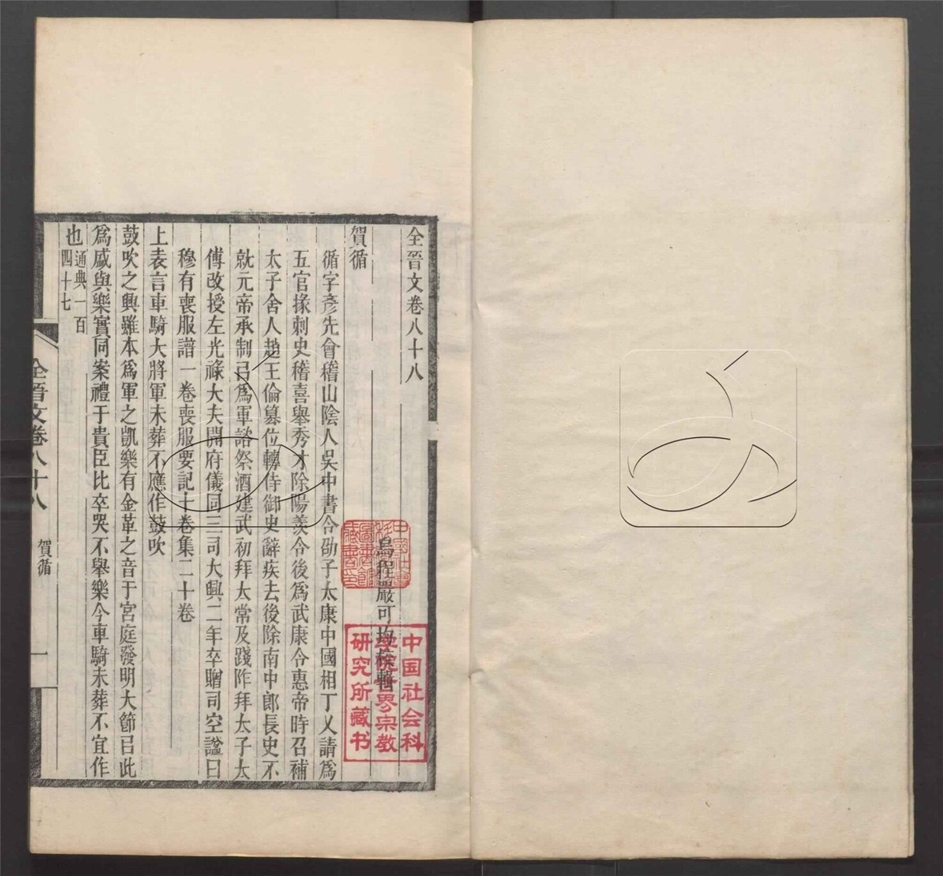 全晉文卷八十八
烏程嚴可均校輯
賀循
循字彥先會稽山陰人吳中書令劭子太康中國相丁乂請爲
五官掾刺史嵇喜舉秀才除陽羨令後爲武康令惠帝時召補
太子舍人趙王倫篡位轉侍御史辭疾去後除南中郎長史不
就元帝承制㠯爲軍諮祭酒建武初拜太常及踐阼拜太子太
傅改授左光祿大夫開府儀同三司大興二年卒贈司空諡曰
穆有喪服譜一卷喪服要記十卷集二十卷
上表言車騎大將軍未葬不應作鼓吹
鼓吹之興雖本爲軍之凱樂有金革之音于宮庭發明大節㠯此
爲戚與樂實同案禮于貴臣比卒哭不舉樂今車騎未葬不宜作
也通典一百四十七
全晉文卷八十八
賀循
一
中国社会科
学院世界宗教
研究所藏书